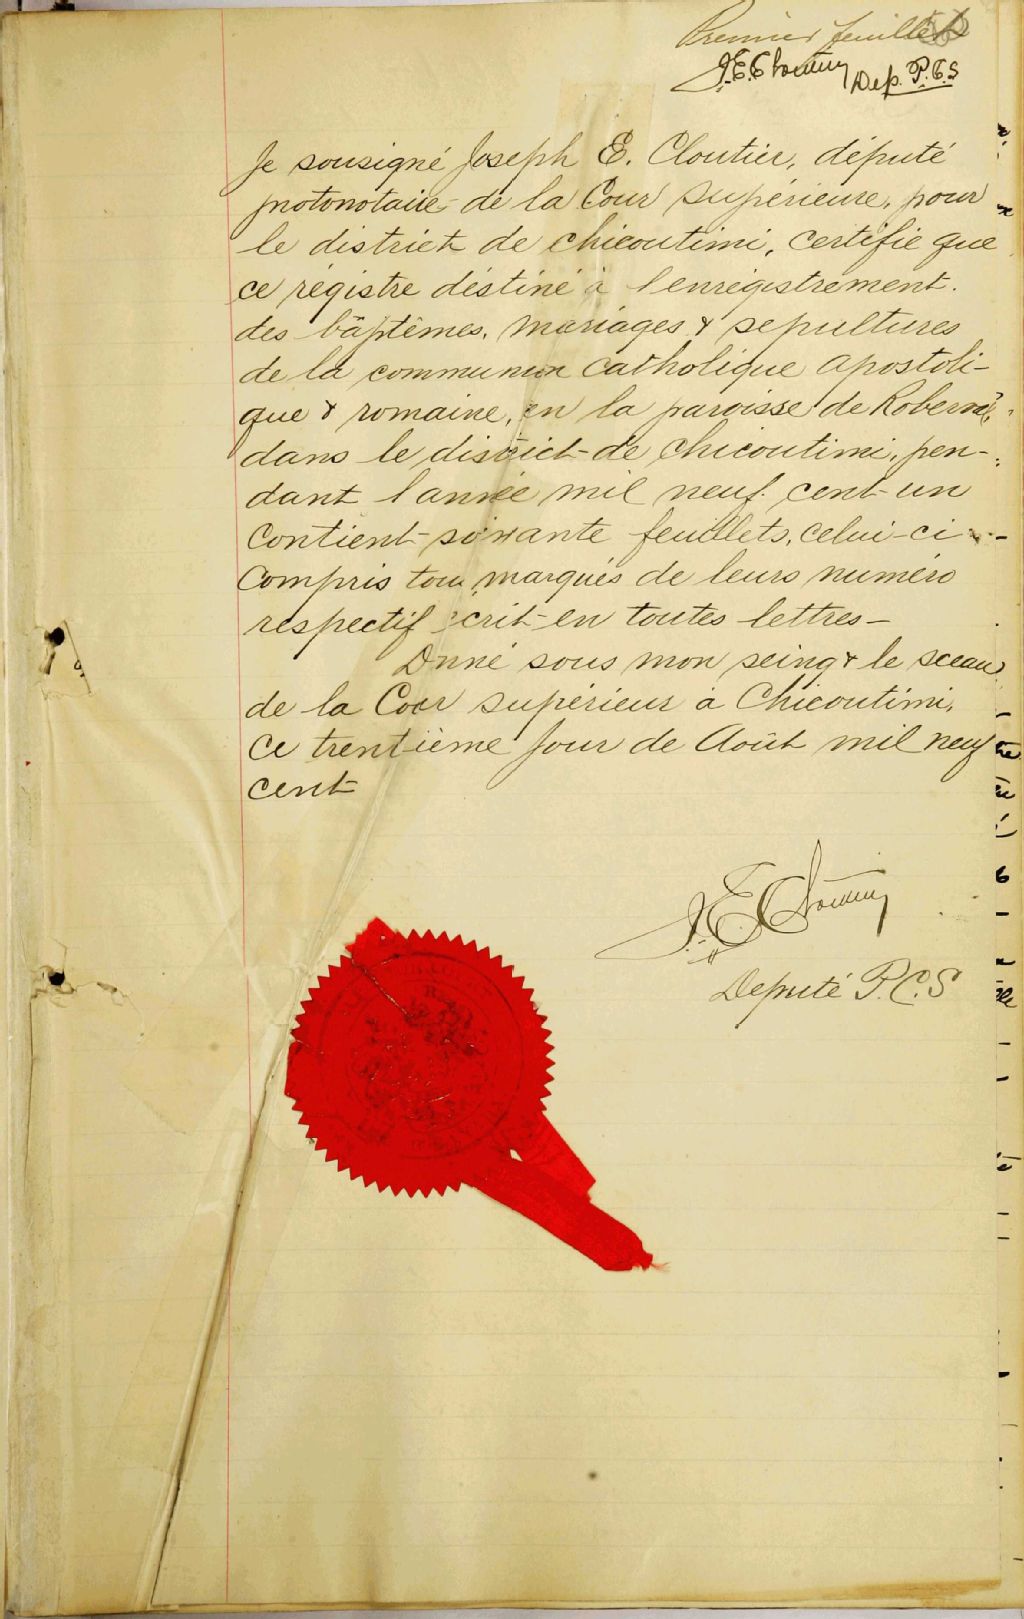 Premier feuillet
J.E.Cloutier Dep. P.C.S
Je sousigné Joseph E. Cloutier, député
protonotaire de la Cour Supérieure, pour
le district de Chicoutimi, certifie que
ce régistre déstiné à l'enrégistrement.
des bâptêmes, mariages & sepultures
de la communion Catholique Apostoli-
que & romaine, en la paroisse de Roberval,
dans le district de Chicoutimi, pen-
dant l'année mil neuf cent un
Contient soixante feuillets, celui-ci
Compris tous marqués de leurs numéro
respectif écrit en toutes lettres-
Donné sous mon seing & le sceau
de la Cour supérieur à Chicoutimi,
Ce trentième jour de Août mil neuf
cent
J.E.Cloutier
Deputé P.C.S